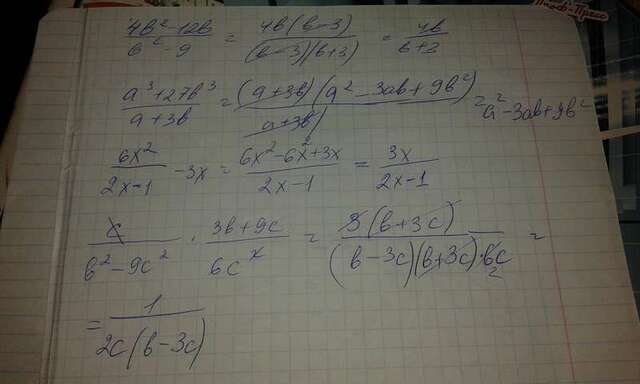 (4b² - 12b)/(b² - 9) = (4b(b-3))/((b-3)(b+3)) = 4b/(b+3)
(a³ + 27b³)/(a + 3b) = ((a+3b)(a² - 3ab + 9b²))/(a+3b) = a² - 3ab + 9b²
6x²/(2x-1) - 3x = (6x² - 6x² + 3x)/(2x-1) = 3x/(2x-1)
c/(b² - 9c²) · (3b + 9c)/(6c²) = (3(b+3c))/((b-3c)(b+3c)·6c) =
2
= 1/(2c(b-3c))